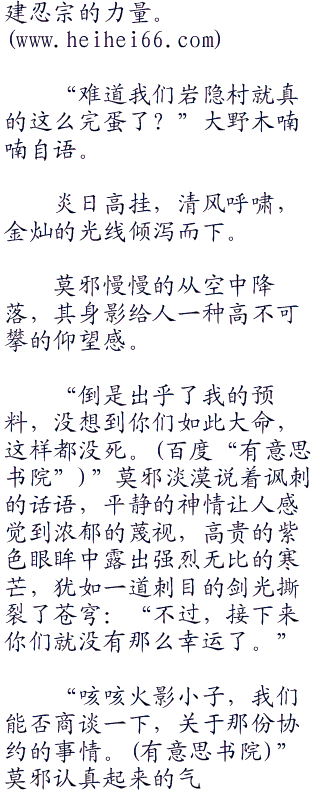 建忍宗的力量。
(www.heihei66.com)
“难道我们岩隐村就真
的这么完蛋了？”大野木喃
喃自语。
炎日高挂，清风呼啸，
金灿的光线倾泻而下。
莫邪慢慢的从空中降
落，其身影给人一种高不可
攀的仰望感。
“倒是出乎了我的预
料，没想到你们如此大命，
这样都没死。(百度“有意思
书院”)”莫邪淡漠说着讽刺
的话语，平静的神情让人感
觉到浓郁的蔑视，高贵的紫
色眼眸中露出强烈无比的寒
芒，犹如一道刺目的剑光撕
裂了苍穹：“不过，接下来
你们就没有那么幸运了。”
“咳咳火影小子，我们
能否商谈一下，关于那份协
约的事情。(有意思书院)”
莫邪认真起来的气